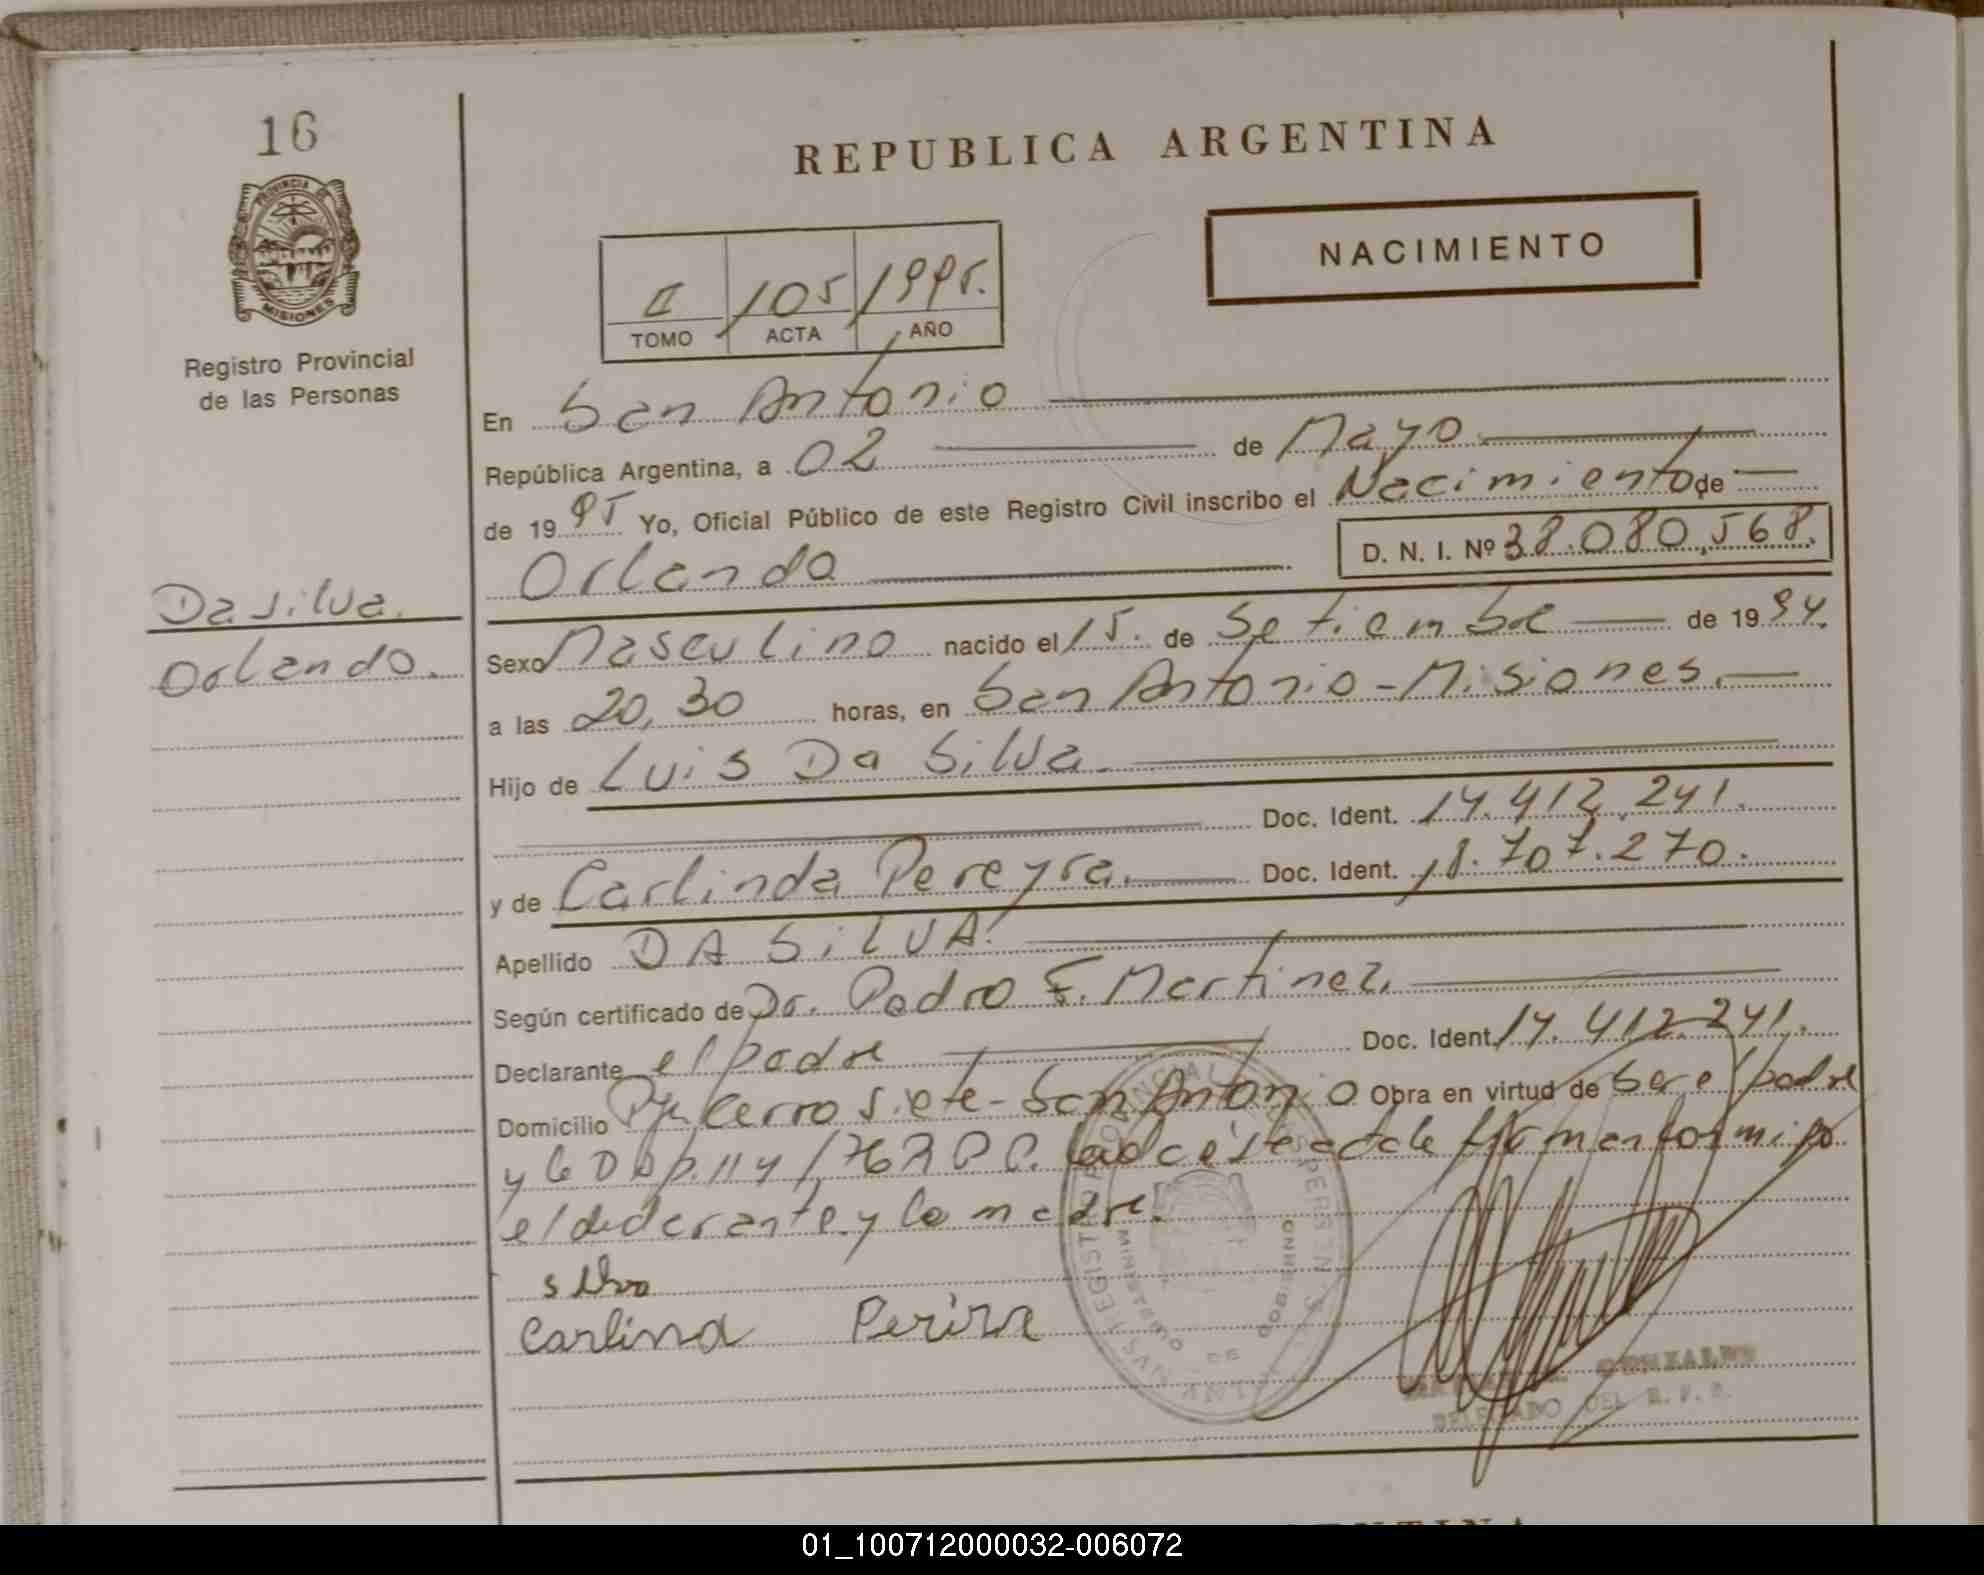 16
PROVINCIA DE
MISIONES
Registro Provincial
de las Personas
Da silva.
Orlando.
REPUBLICA ARGENTINA
NACIMIENTO
II 105 1995.
TOMO ACTA AÑO
En San Antonio
República Argentina, a 02 de Mayo
de 1995 Yo, Oficial Público de este Registro Civil inscribo el Nacimiento de
Orlando D. N. I. Nº 38.080.568.
Sexo Masculino nacido el 15. de Setiembre de 1994.
a las 20,30 horas, en San Antonio - Misiones.
Hijo de Luis Da Silva
Doc. Ident. 14.412.241.
y de Carlinda Pereyra. Doc. Ident. 18.707.270.
Apellido DA SILVA.
Según certificado de Dr. Pedro E. Martinez.
Declarante el padre Doc. Ident. 14.412.241.
Domicilio Pje Cerro Siete - San Antonio Obra en virtud de ser el padre
y la
el declarante y la madre.
Carlinda Perira
MINISTERIO DE GOBIERNO
GONZALEZ
DELEGADO DEL R. P. P.
01_100712000032-006072